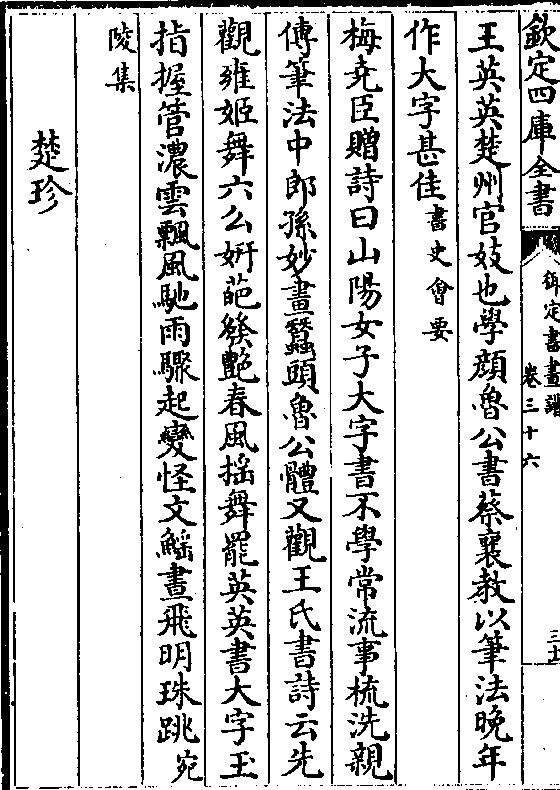 欽定四庫全書
御定書畫譜
卷三十六
王英英楚州官妓也學顔魯公書蔡襄教以筆法晚年
作大字甚佳書史會要
梅堯臣贈詩曰山陽女子大字書不學常流事梳洗親
傳筆法中郎孫妙畫蠶頭魯公體又觀王氏書詩云先
觀雍姬舞六么妍葩發艷春風揺舞罷英英書大字玉
指握管濃雲飄風馳雨驟起變怪文鰩晝飛明珠跳宛
陵集
楚珍